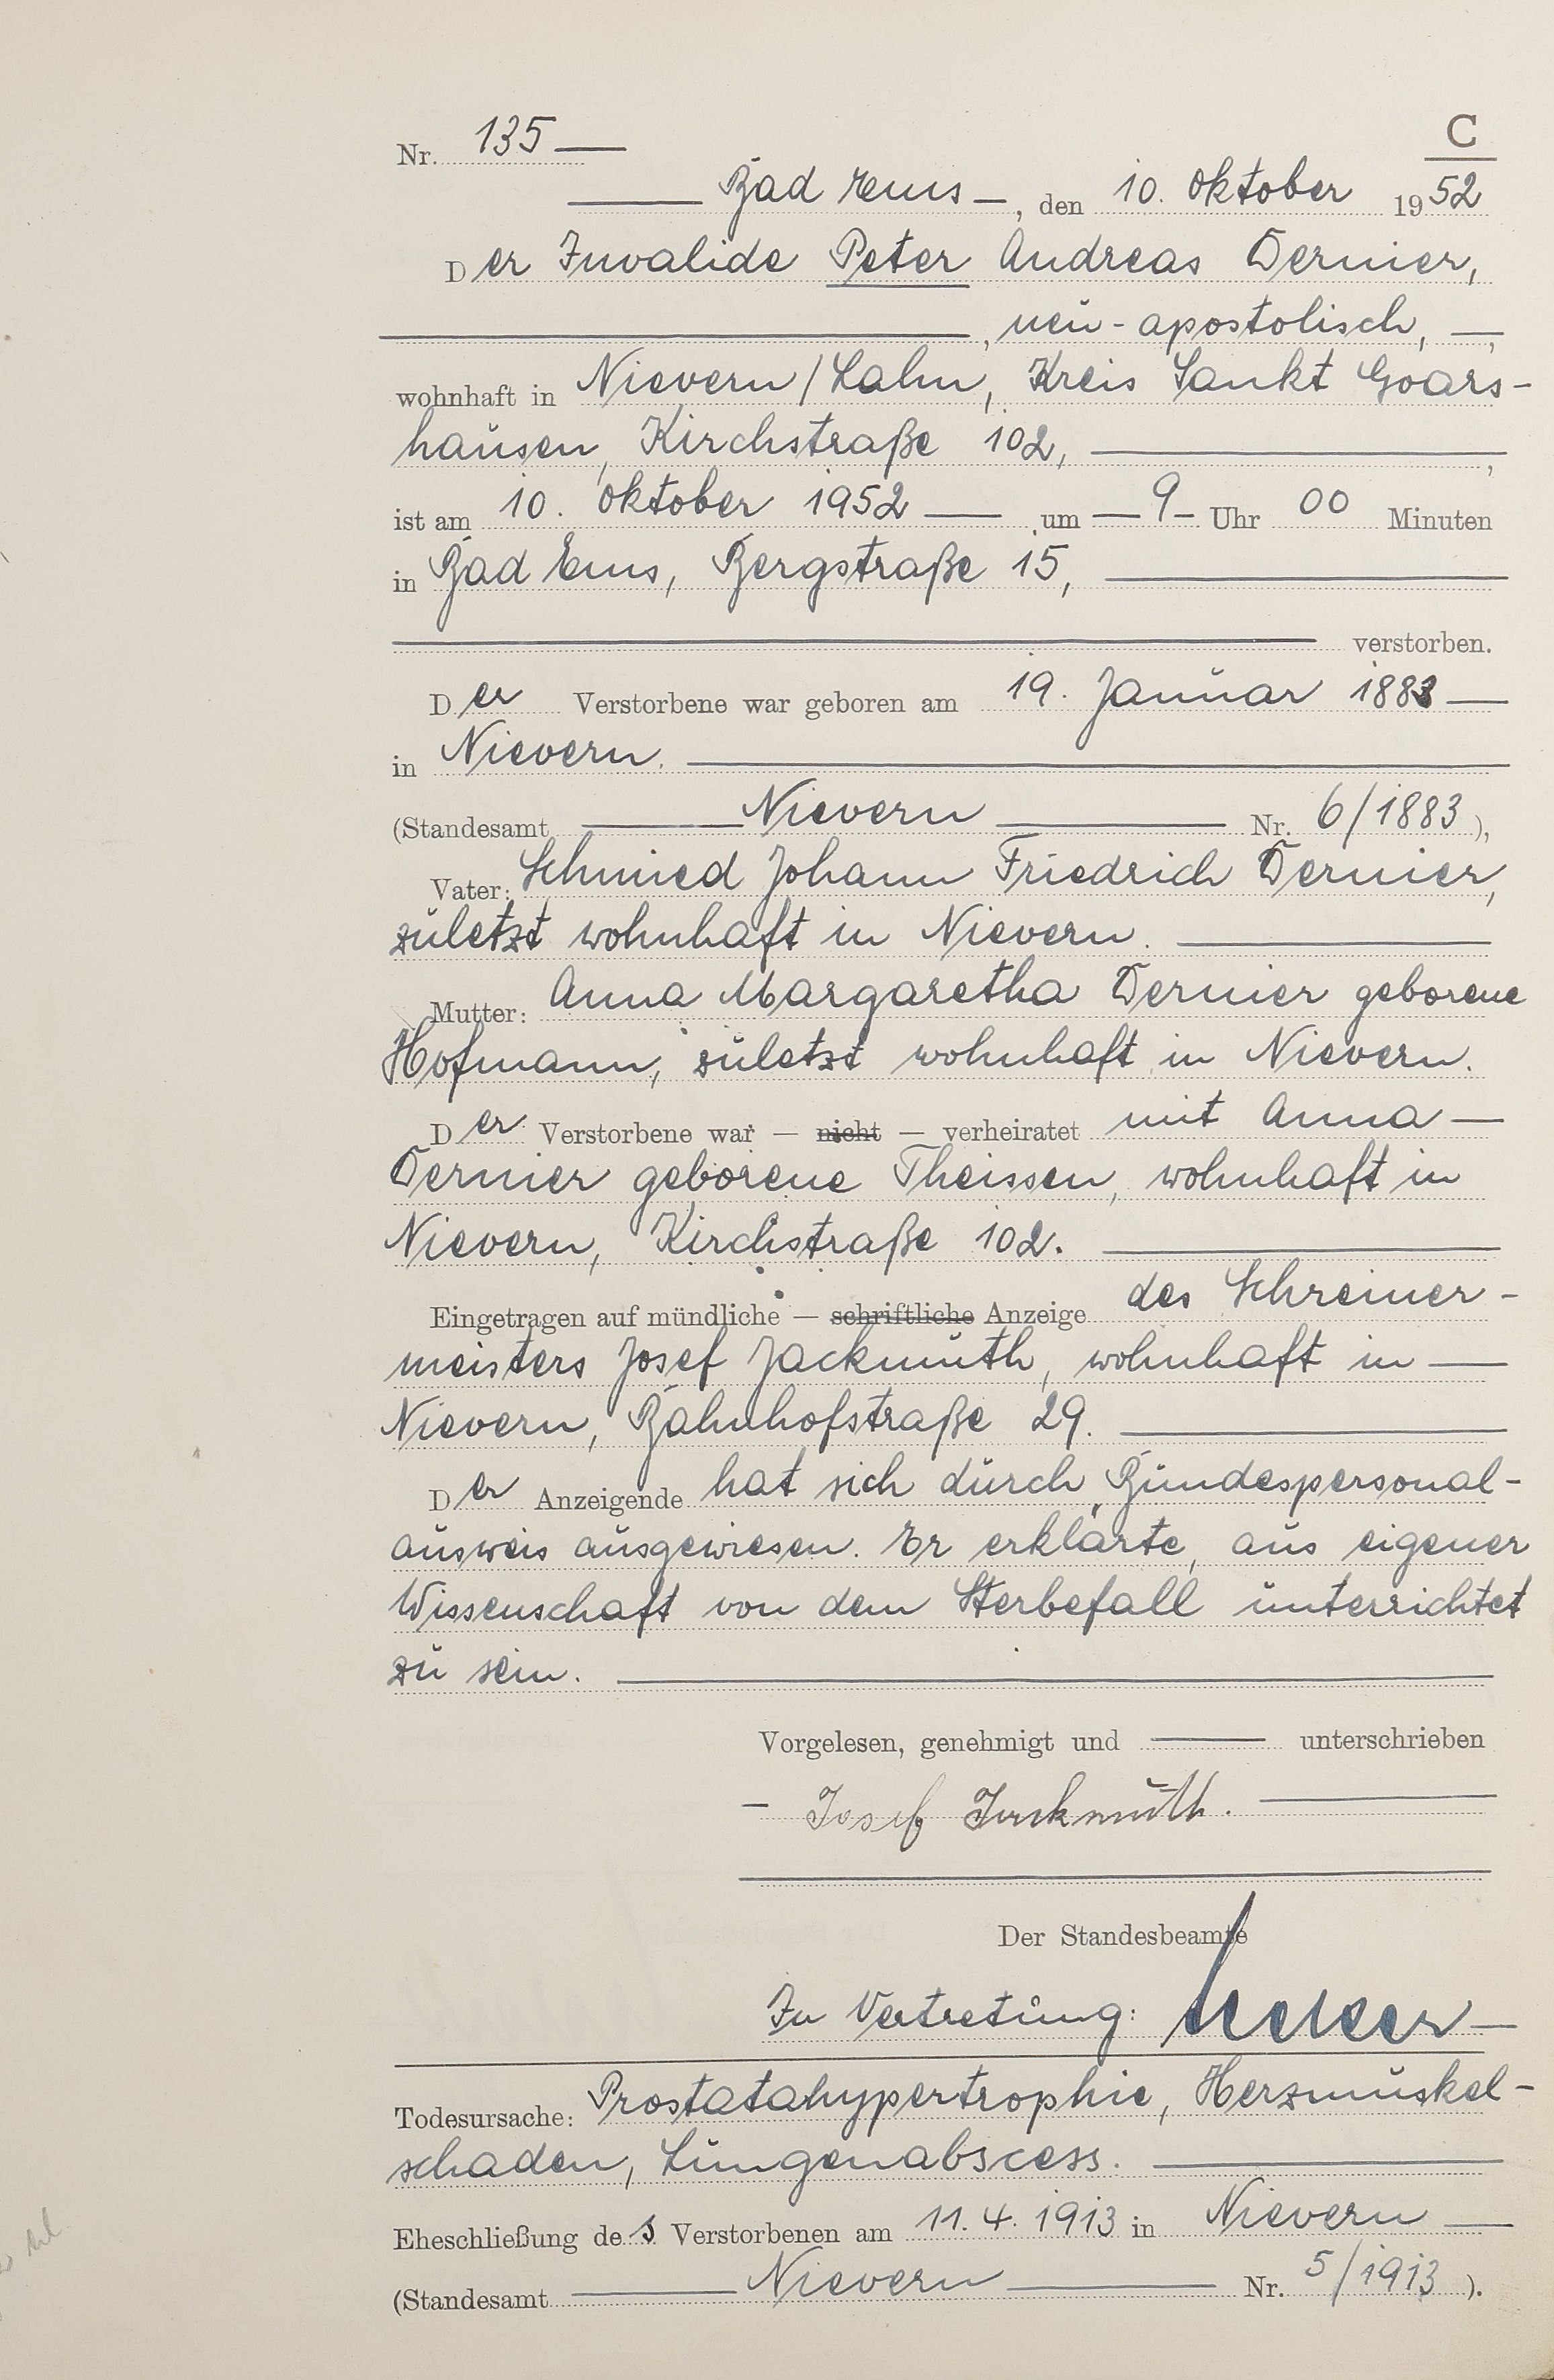 C
Nr. 135 —
— Bad Ems —, den 10. Oktober 1952
Der Invalide Peter Andreas Dernier,
—, neu-apostolisch, —,
wohnhaft in Nievern/Lahn, Kreis Sankt Goars-
hausen, Kirchstraße 102, —,
ist am 10. Oktober 1952 — um — 9 — Uhr 00 Minuten
in Bad Ems, Bergstraße 15, —
— verstorben.
Der Verstorbene war geboren am 19. Januar 1883 —
in Nievern. —
(Standesamt — Nievern — Nr. 6/1883),
Vater: Schmied Johann Friedrich Dernier,
zuletzt wohnhaft in Nievern. —
Mutter: Anna Margaretha Dernier geborene
Hofmann, zuletzt wohnhaft in Nievern.
Der Verstorbene war — nicht — verheiratet mit Anna —
Dernier geborene Theissen, wohnhaft in
Nievern, Kirchstraße 102. —
Eingetragen auf mündliche — schriftliche Anzeige des Schreiner-
meisters Josef Jackmuth, wohnhaft in —
Nievern, Bahnhofstraße 29. —
Der Anzeigende hat sich durch Bundespersonal-
ausweis ausgewiesen. Er erklärte, aus eigener
Wissenschaft von dem Sterbefall unterrichtet
zu sein. —
Vorgelesen, genehmigt und — unterschrieben
— Josef Jackmuth. —
Der Standesbeamte
In Vertretung:
Todesursache: Prostatahypertrophie, Herzmuskel-
schaden, Lungenabscess. —
Eheschließung des Verstorbenen am 11. 4. 1913 in Nievern —
(Standesamt — Nievern — Nr. 5/1913).